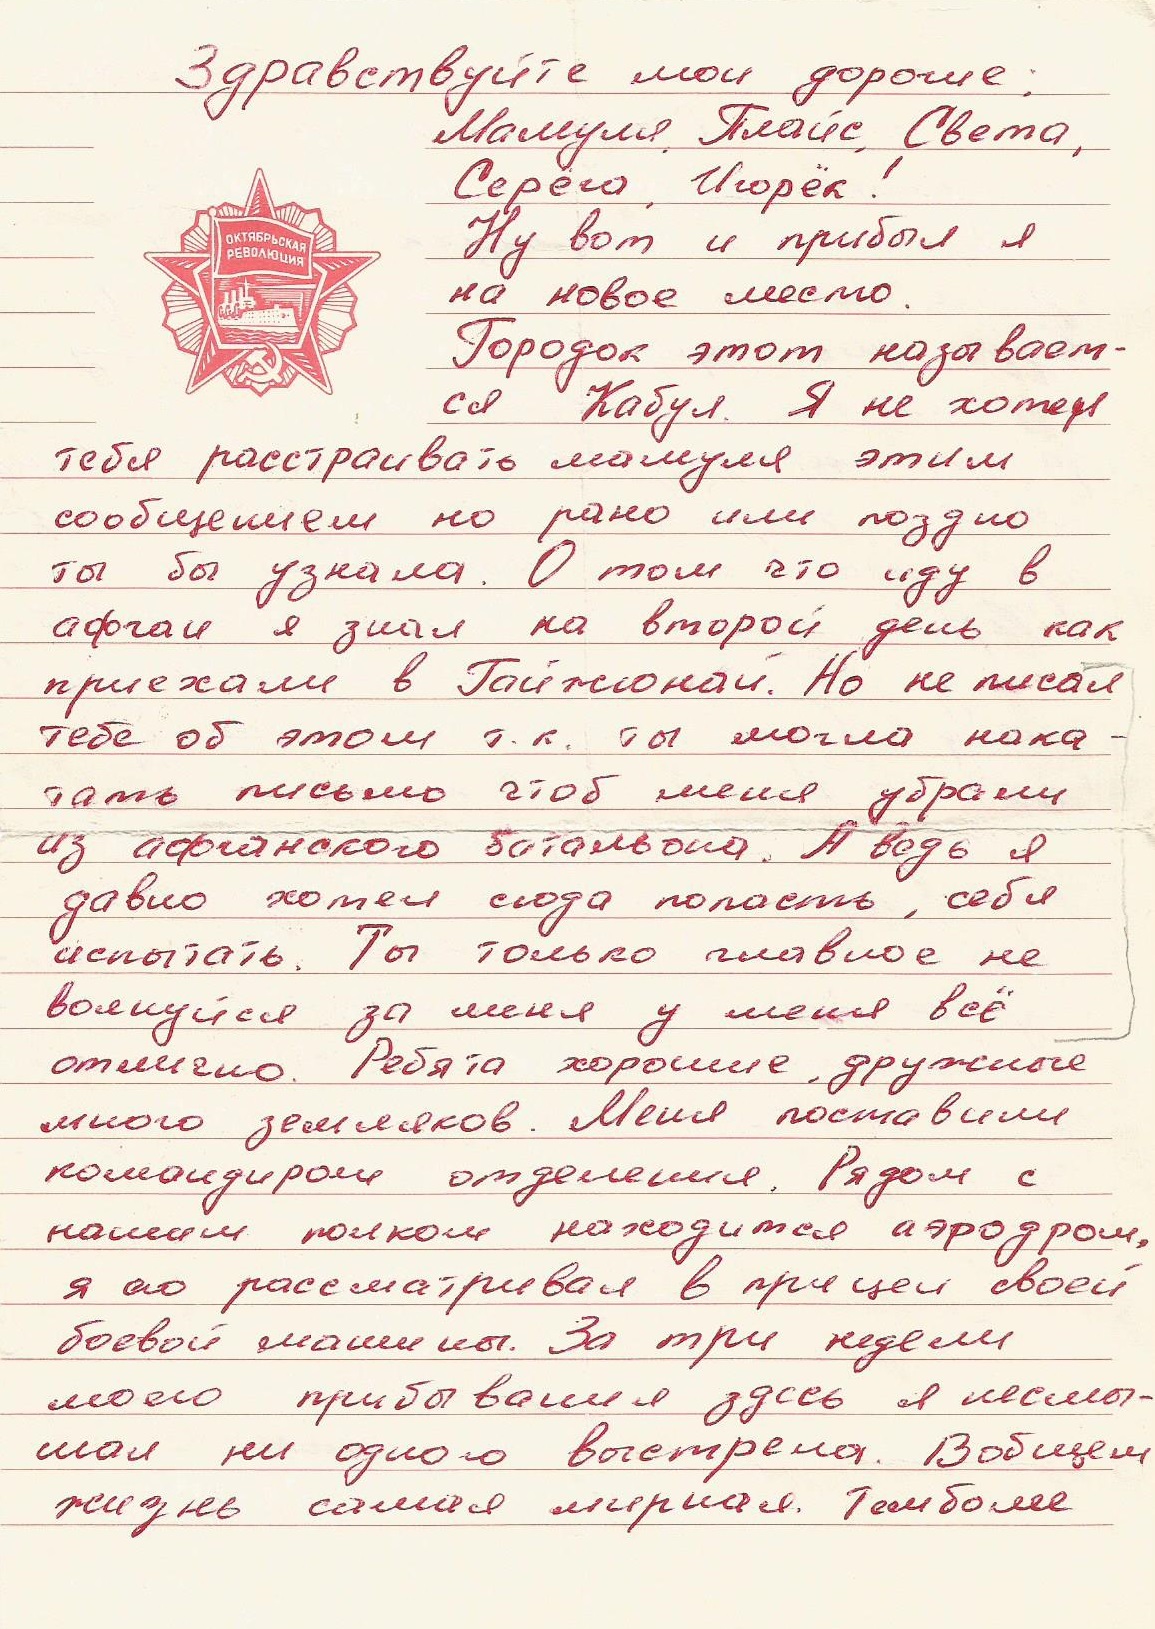 Здравствуйте мои дорогие:
Мамуля, Плайс, Света,
Серёга, Игорёк!
ОКТЯБРЬСКАЯ
РЕВОЛЮЦИЯ
Ну вот и прибыл я
на новое место.
Городок этот называет-
ся Кабул. Я не хотел
тебя расстраивать мамуля этим
сообщением но рано или поздно
ты бы узнала. О том что иду в
афган я знал на второй день как
приехали в Гайжюнай. Но не писал
тебе об этом т.к. ты могла нака-
тать письмо чтоб меня убрали
из афганского батальона. А ведь я
давно хотел сюда попасть, себя
испытать. Ты только главное не
волнуйся за меня у меня всё
отлично. Ребята хорошие, дружные
много земляков. Меня поставили
командиром отделения. Рядом с
нашим полком находится аэродром,
я его рассматривал в прицел своей
боевой машины. За три недели
моего прибывания здесь я неслы-
шал ни одного выстрела. Вобщем
жизнь самая мирная. Темболее